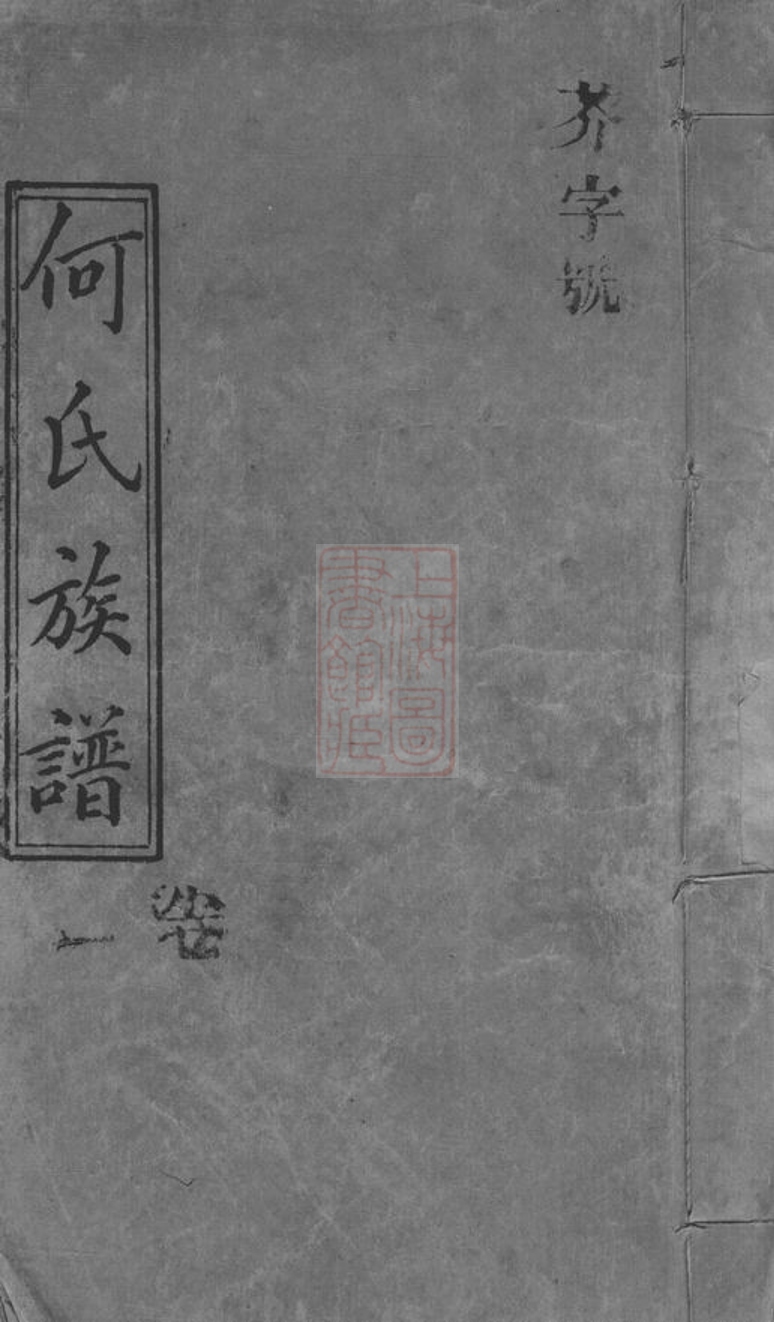 芥字號
上海圖
書館藏
何氏族譜
卷
一